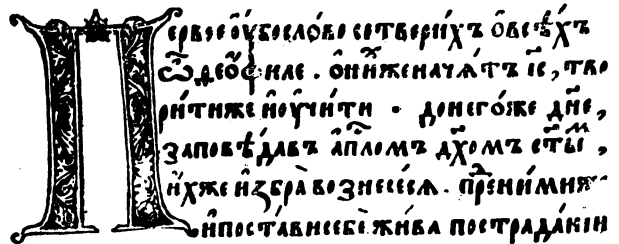 Первое ᲂу҆́бо сло́во сотвори́хъ ѡ҆ все́хъ
ѽ ѳео́филе. ѡ҆ ни́хже начѧ́тъ і҆с҃, тво
ри́ти же и҆ ᲂу҆чи́ти · до него́же дн҃е,
запове́давъ а҆пⷭ҇ломъ дх҃омъ ст҃ыⷨ,
и҆́хже и҆збра̀ вознесе́сѧ. преⷣ ни́миж
и҆ поста́ви себѐ жи́ва по страда́нїи